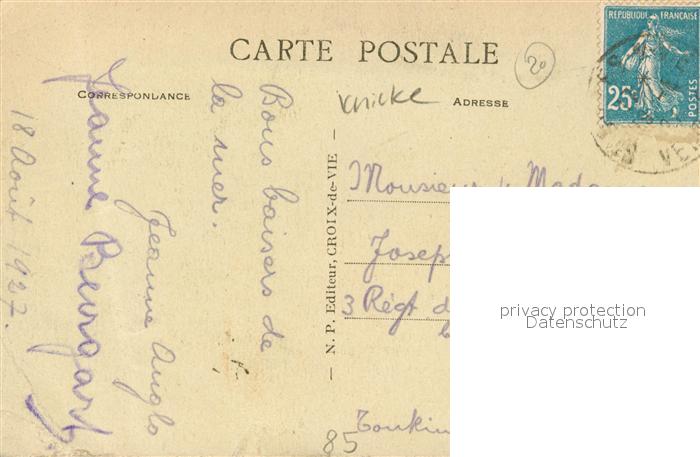 RÉPUBLIQUE FRANÇAISE
25c
POSTES
CARTE POSTALE
20
CORRESPONDANCE
knicke
ADRESSE
Bons baisers de
la mer.
Jeanne Anglo
Jeanne
18 Août 1927.
— N. P. Editeur, CROIX-de-VIE —
Monsieur & Mada
Josep
3 Régt d
Tonkin
85
privacy protection
Datenschutz